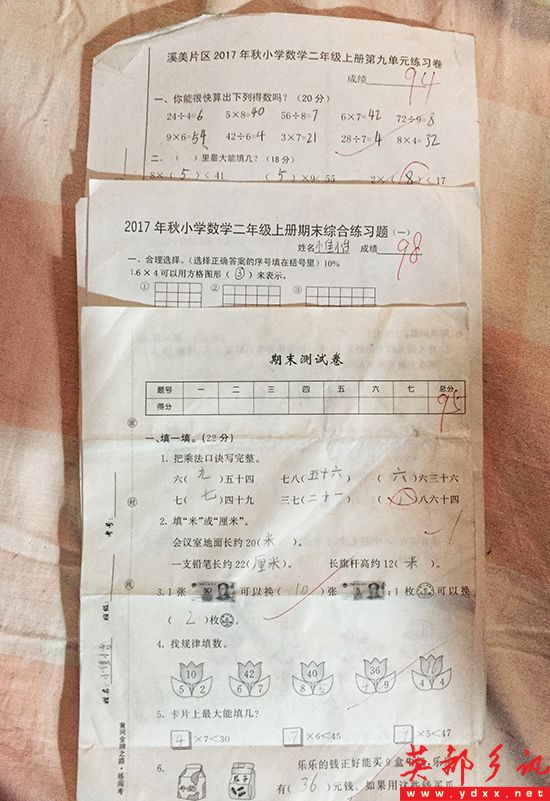 溪美片区2017年秋小学数学二年级上册第九单元练习卷
成绩 94
一、你能很快算出下列得数吗?(20分)
24÷4=6 5×8=40 56÷8=7 6×7=42 72÷9=8
9×6=54 42÷6=4 3×7=21 28÷7=4 8×4=32
二、( )里最大能填几?(18分)
8×(5)<41 (5)×9<55 2×(8)<17
2017年秋小学数学二年级上册期末综合练习题(一)
姓名 成绩 98
一、合理选择。(选择正确答案的序号填在括号里)10%
1.6×4可以用方格图形(③)来表示。
① ② ③
期末测试卷
题号 一 二 三 四 五 六 七 总分
得分 95
一、填一填。(22分)
1. 把乘法口诀写完整。
六(九)五十四 七八(五十六) (六)六三十六
七(七)四十九 三七(二十一) (八)八六十四
2. 填“米”或“厘米”。
会议室地面长约20(米)。
一支铅笔长约22(厘米)。 长旗杆高约12(米)。
3. 1张 可以换(10)张 ;1枚 可以换
(2)枚 。
4. 找规律填数。
10 42 40 36
5 2 6 7 8 9 4 4
5. 卡片上最大能填几?
4×7<30 7×6<45 9×5<47
6.
乐乐的钱正好能买9盒牛
有(36)元钱。如果用这些钱买瓜
密
封
线
考号:
班级:
姓名:
黄冈金牌之路·练闯考
英都乡讯
www.ydxx.net